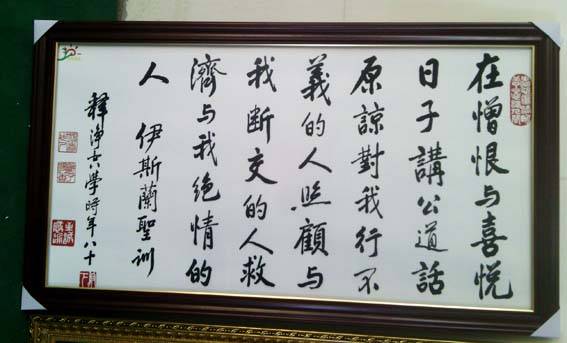 在憎恨与喜悦
日子講公道話
原諒對我行不
義的人照顧与
我断交的人救
濟与我绝情的
人 伊斯蘭聖训
釋净空學時年八十